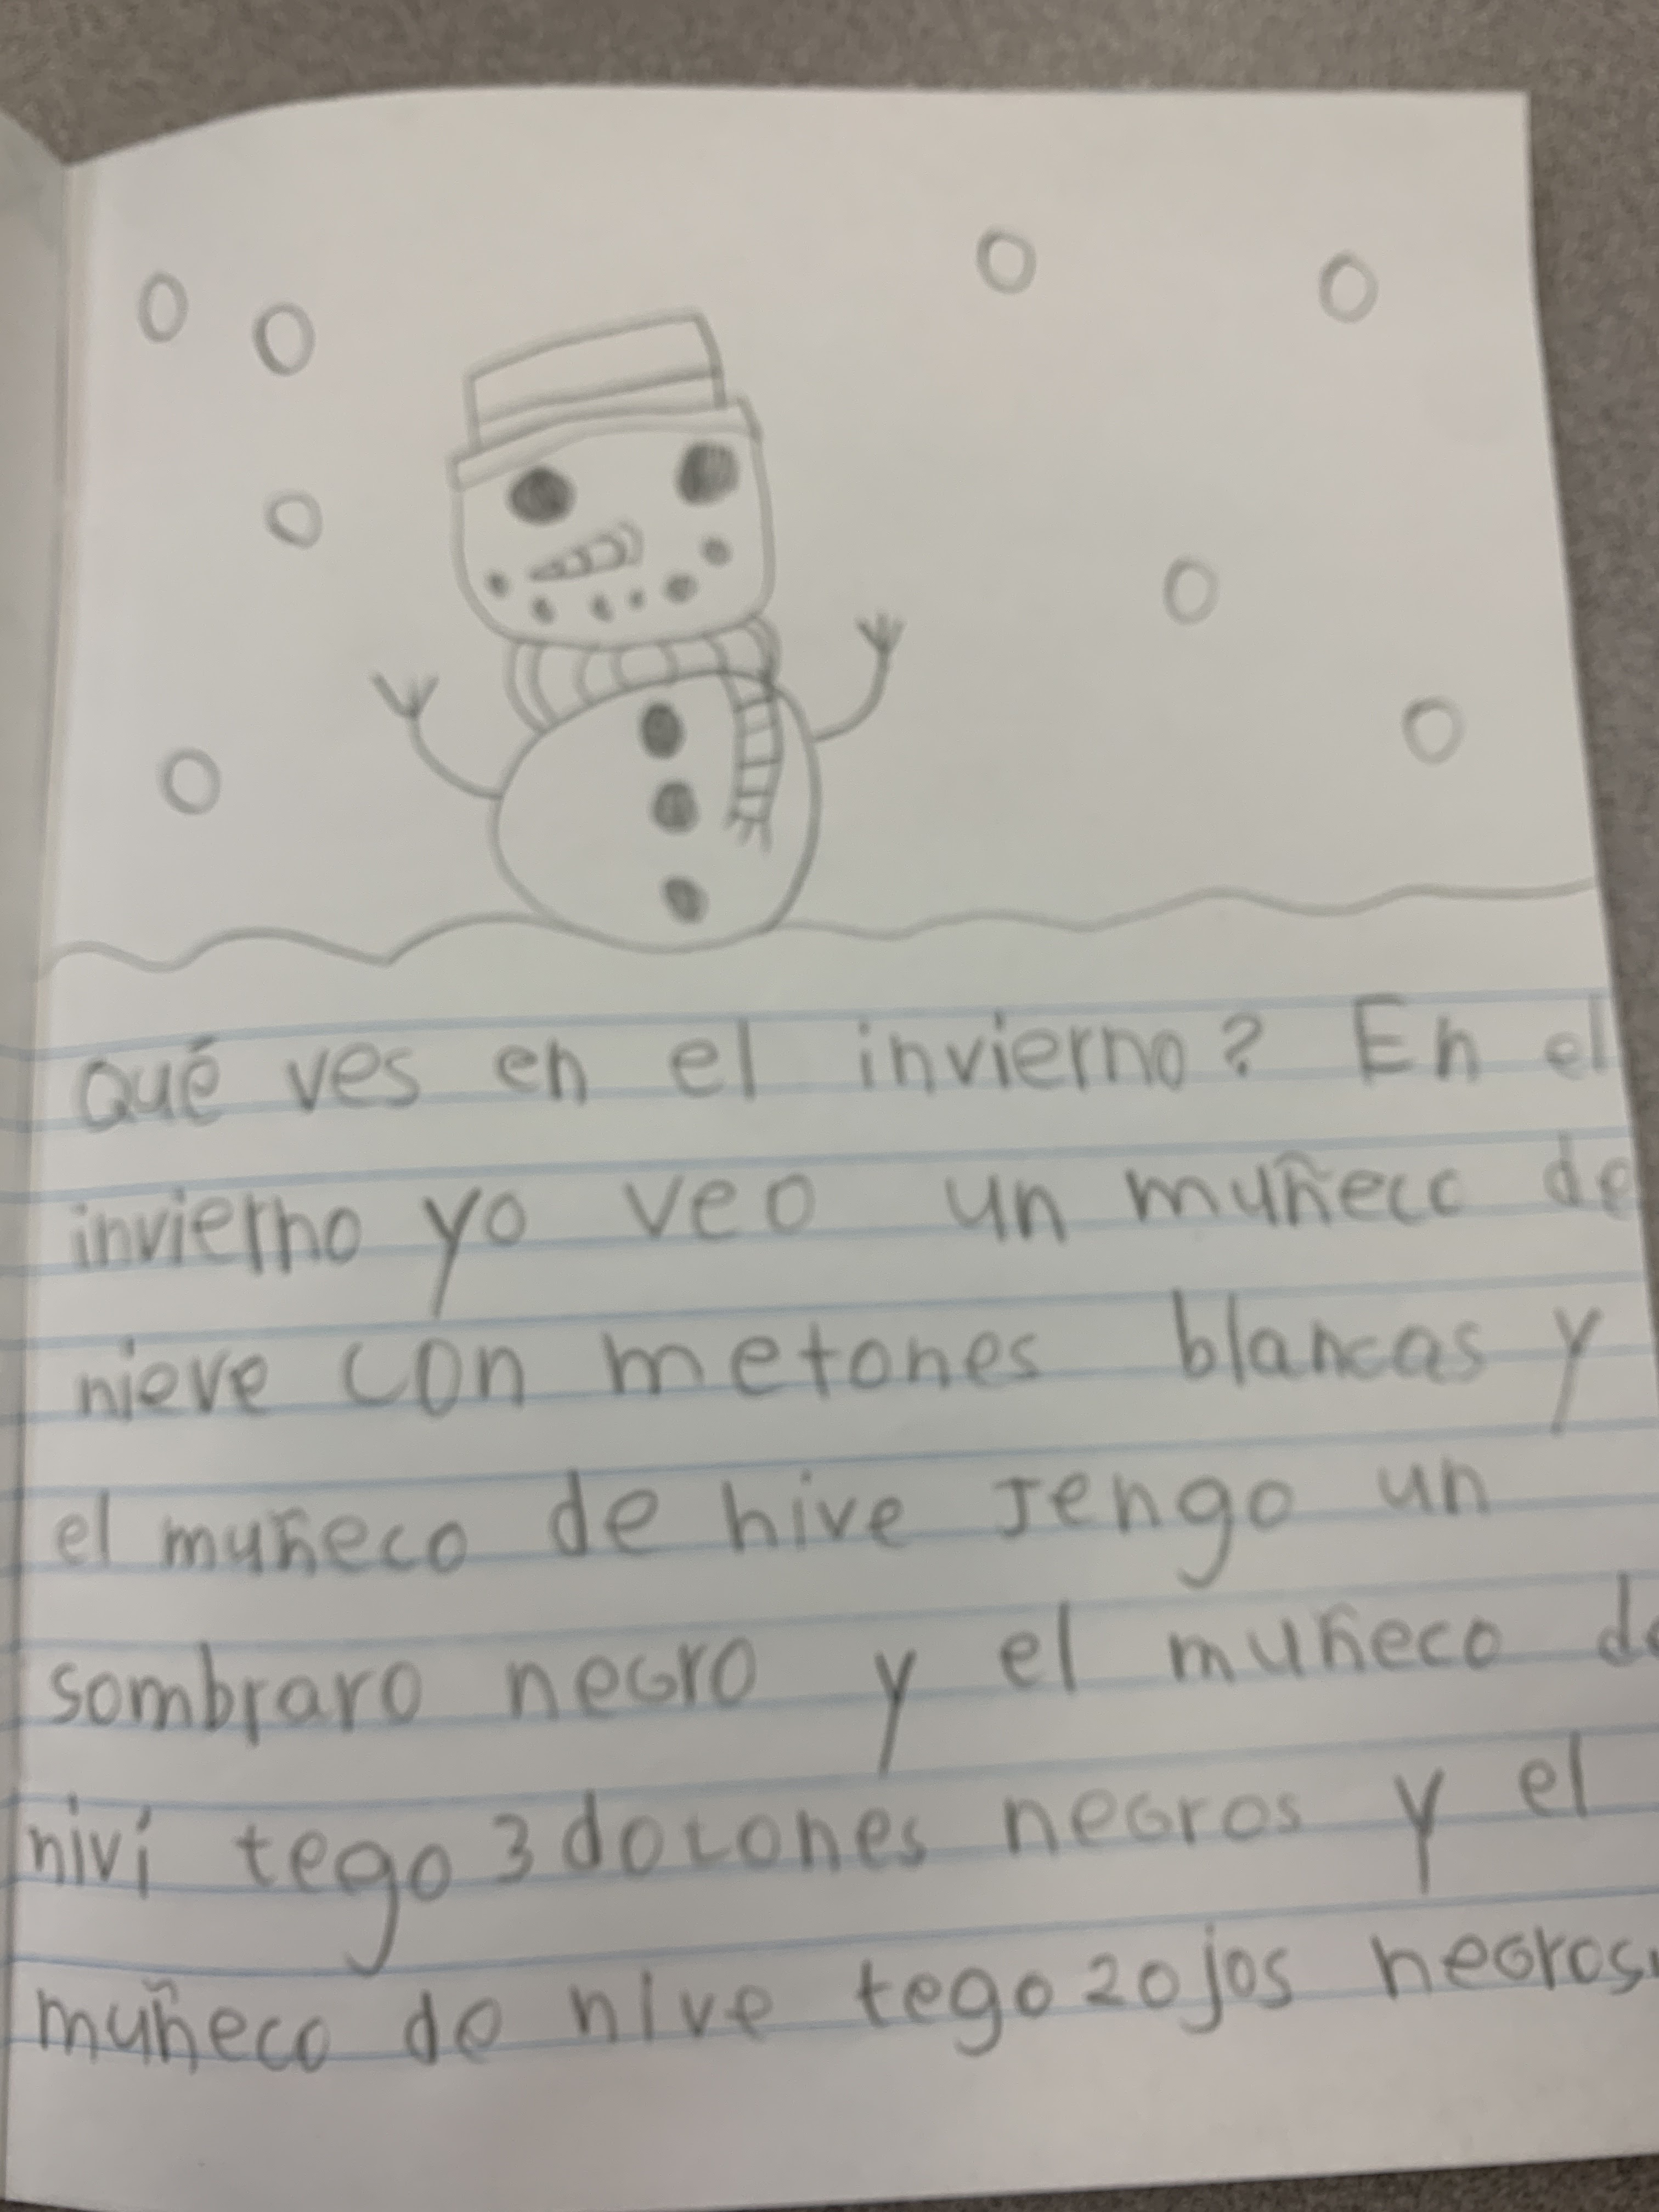 Qué ves en el invierno? En el
invierno yo veo un muñeco de
nieve con metones blancas y
el muñeco de nive tengo un
sombraro negro y el muñeco de
nivi tego 3 dotones negros y el
muñeco de nive tego 2 ojos negros.